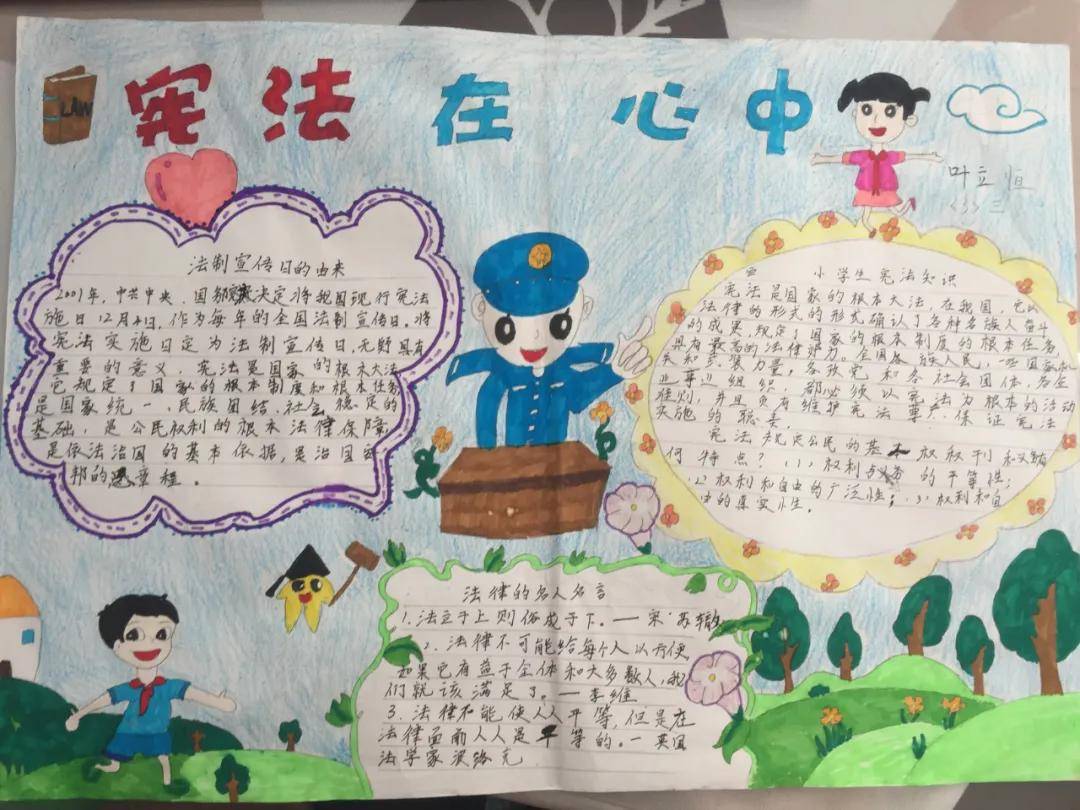 LAW
宪法在心中
叶立恒
<3>三
法制宣传日的由来
2001年，中共中央、国务院决定将我国现行宪法
施日12月4日，作为每年的全国法制宣传日。将
宪法实施日定为法制宣传日，无野具有
重要的意义。宪法是国家的根本大法
它规定了国家的根本制度和根本任务
是国家统一、民族团结、社会稳定的
基础，是公民权利的根本法律保障
是依法治国的基本依据，是治国安
邦的总章程。
小学生宪法知识
宪法是国家的根本大法，在我国，它以
法律的形式的形式确认了各种名族人奋斗
的成果，规定了国家的根本制度的根本任务
具有最高的法律效力。全国各族人民，一些国家机
关和武装力量，各政党和各社会团体，各企
业事业组织，都必须以宪法为根本的活动
准则，并且负有维护宪法尊严，保证宪法
实施的职责。
宪法规定公民的基本权利和义务有
何特点？(1)权利与义务的平等性；
(2)权利和自由的广泛性；(3)权利和自
由的真实性。
法律的名人名言
1.法立于上则俗成于下。—宋·苏辙
2.法律不可能给每个人以方便
如果它有益于全体和大多数人，我
们就该满足了。—李维
3.法律不能使人人平等，但是在
法律面前人人是平等的。—英国
法学家波洛克